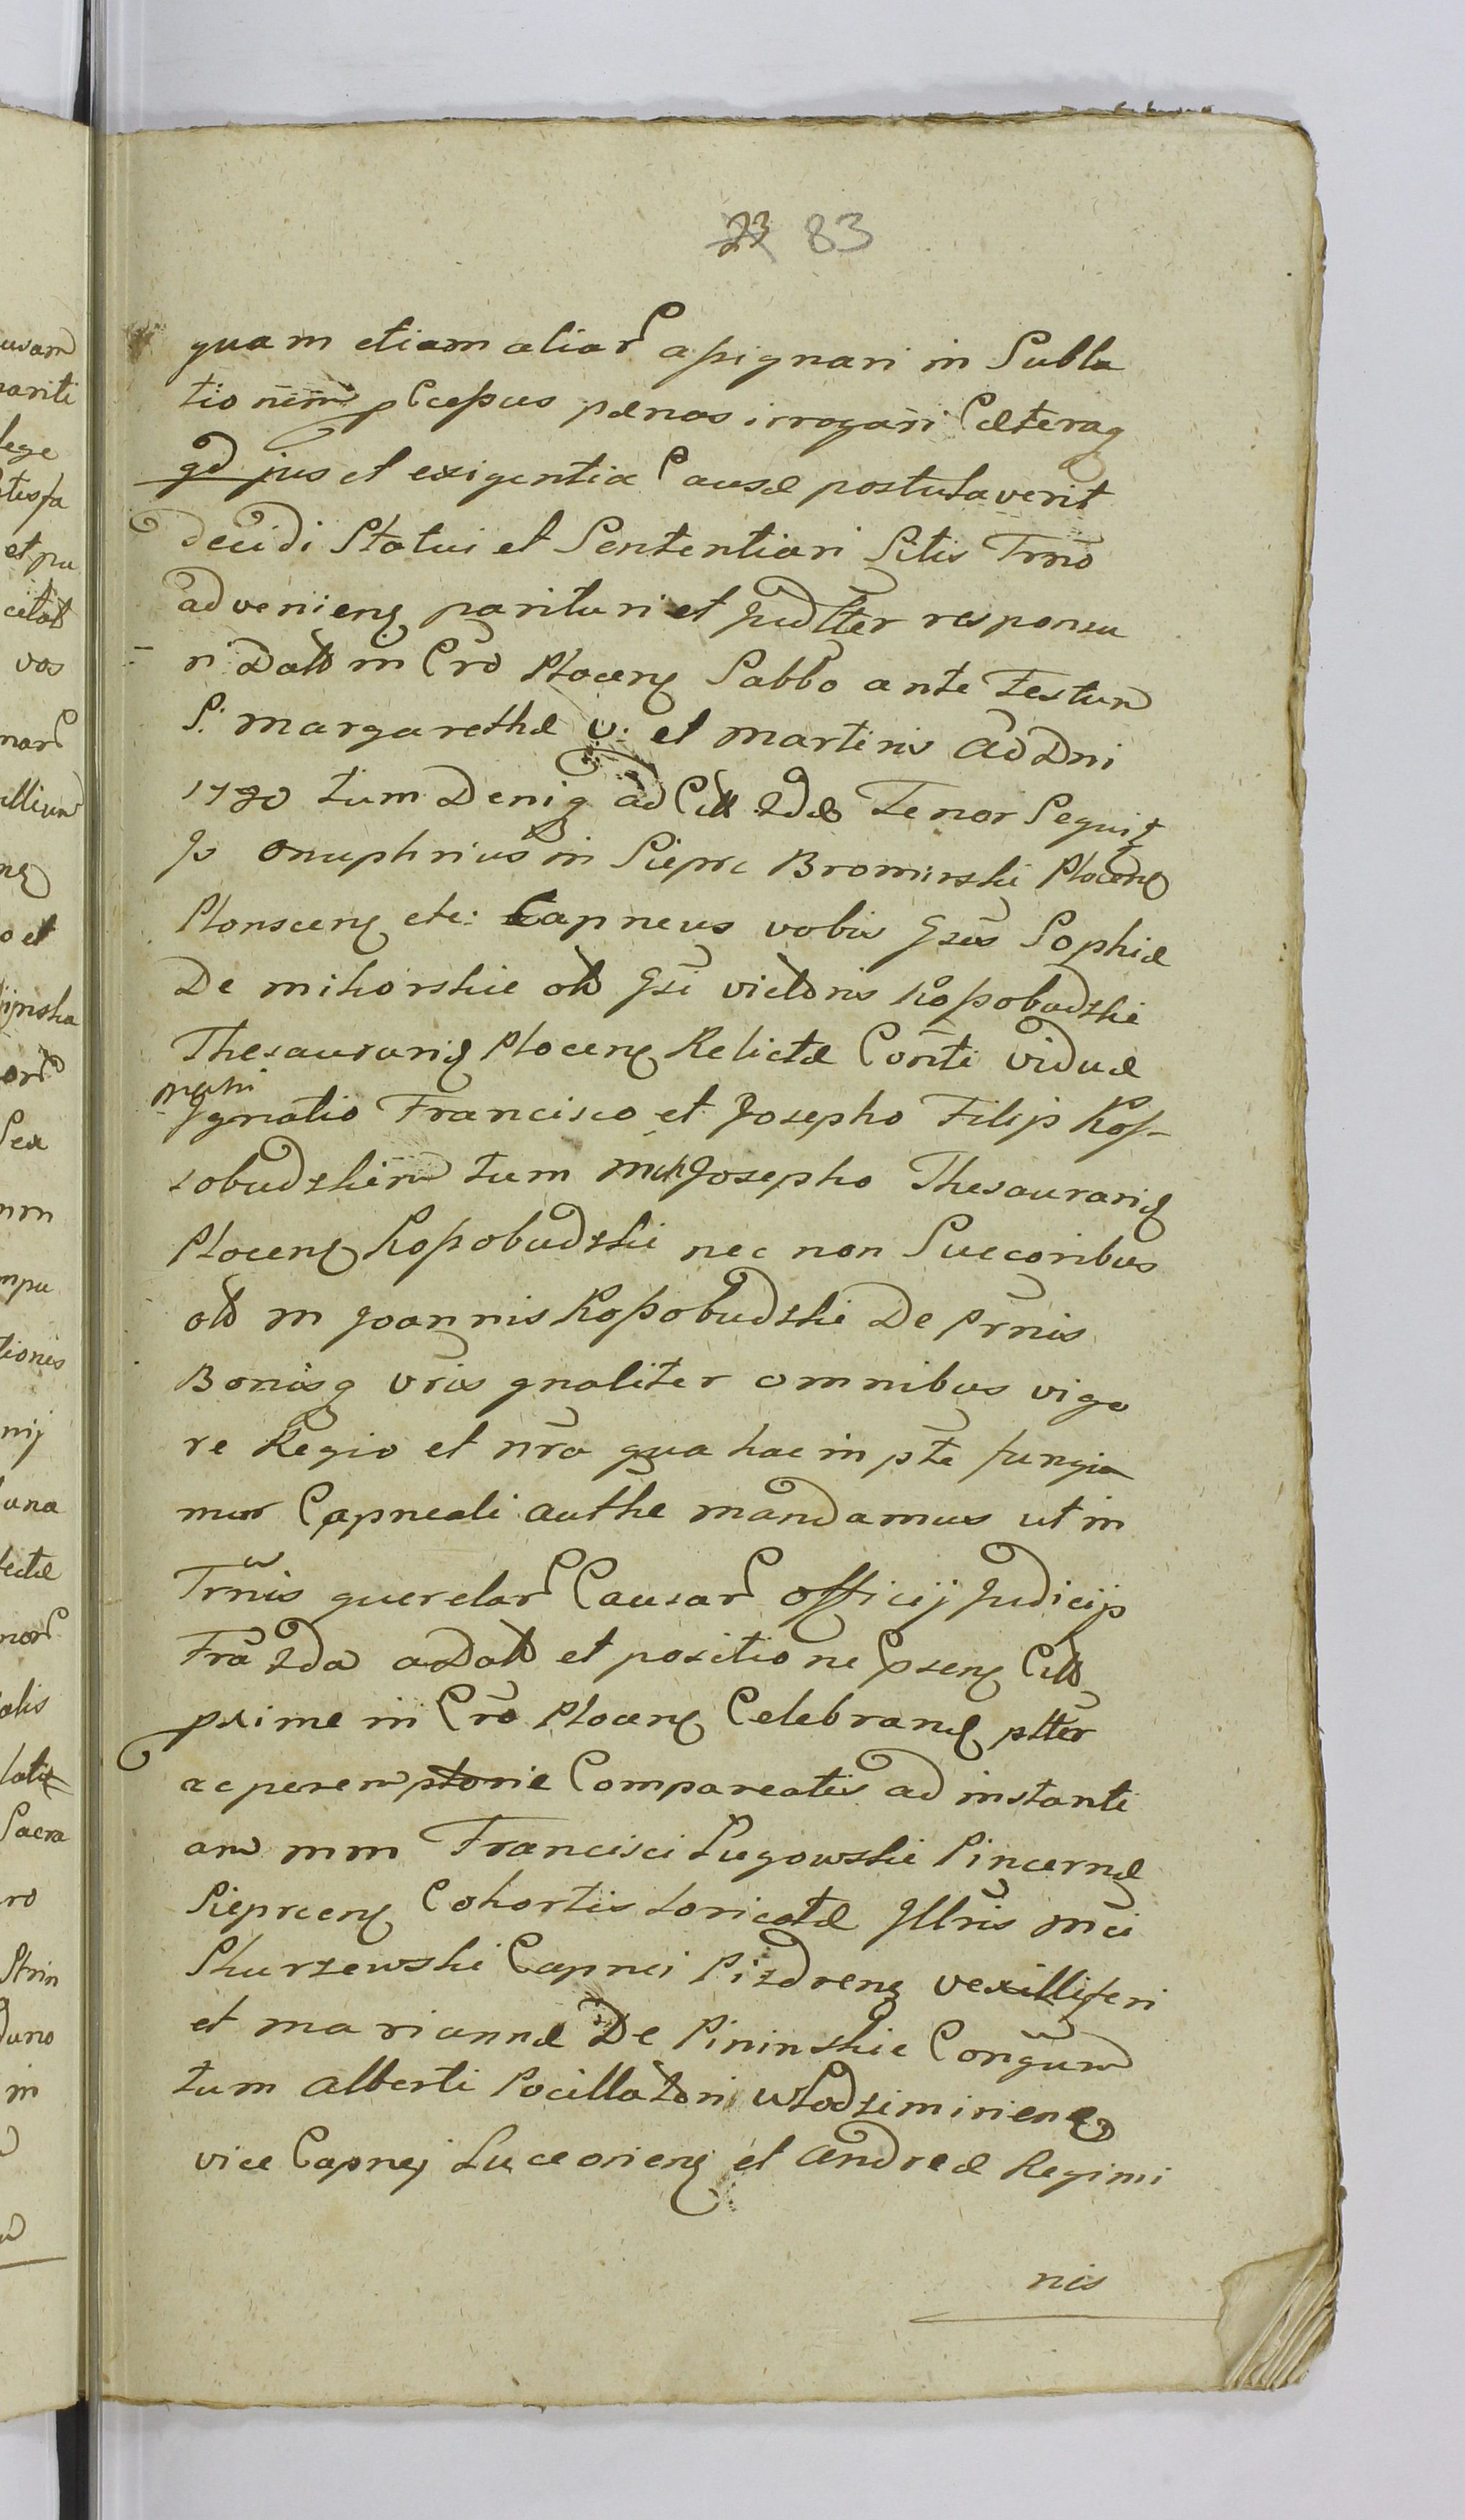 23 83
quam etiam aliar assignari in Subla
tionem pCessus pænas irrogari Cæteraq
qd jus et exigentia Causæ postulaverit
decidi Statui et Sententiari Sitis Trno
advenien parituri et Judlter responsu
ri Datt in Cro Plocen Sabbo ante Festum
S. Margarethæ V. et Martiris AD Dni
1780 tum Deniq ad Citt Tenor Sequit
Js Onuphrius in Sieprc Bromirski Plocen
Plonscen etc: Capneus vobis Gsis Sophiæ
De Mikorskie olt Gsi Victoris Kossobudzkie
Thesaurarij Plocen Relictæ Conti Viduæ
Ignatio Francisco et Josepho Filijs Kos-
sobudzkim tum Josepho Thesaurarij
Plocen Kossobudzki nec non Succoribus
olt M Joannis Kossobudzki De Prnis
Bonisq Vris gnaliter omnibus vigo
re Regio et nra qua hac in pte fungia
mur Capneali Authe mandamus ut in
Trnis querelar Causar Officij Judicijs
Fra 2da a Datt et positione psen Citt
pxime in Cro Plocen Celebran pltter
ac peremptorie Compareatis ad instanti
am MM Francisci Ługowski Pincernæ
Sieprcen Cohortis Loricatæ Jllris Mci
Skurzewski Capnei Pizdren Vexilliferi
et Mariannæ De Pininskie Congum
tum Alberti Pocillatori Włodzimirien
Vice Capnej Luceorien et Andreæ Regimi
nis